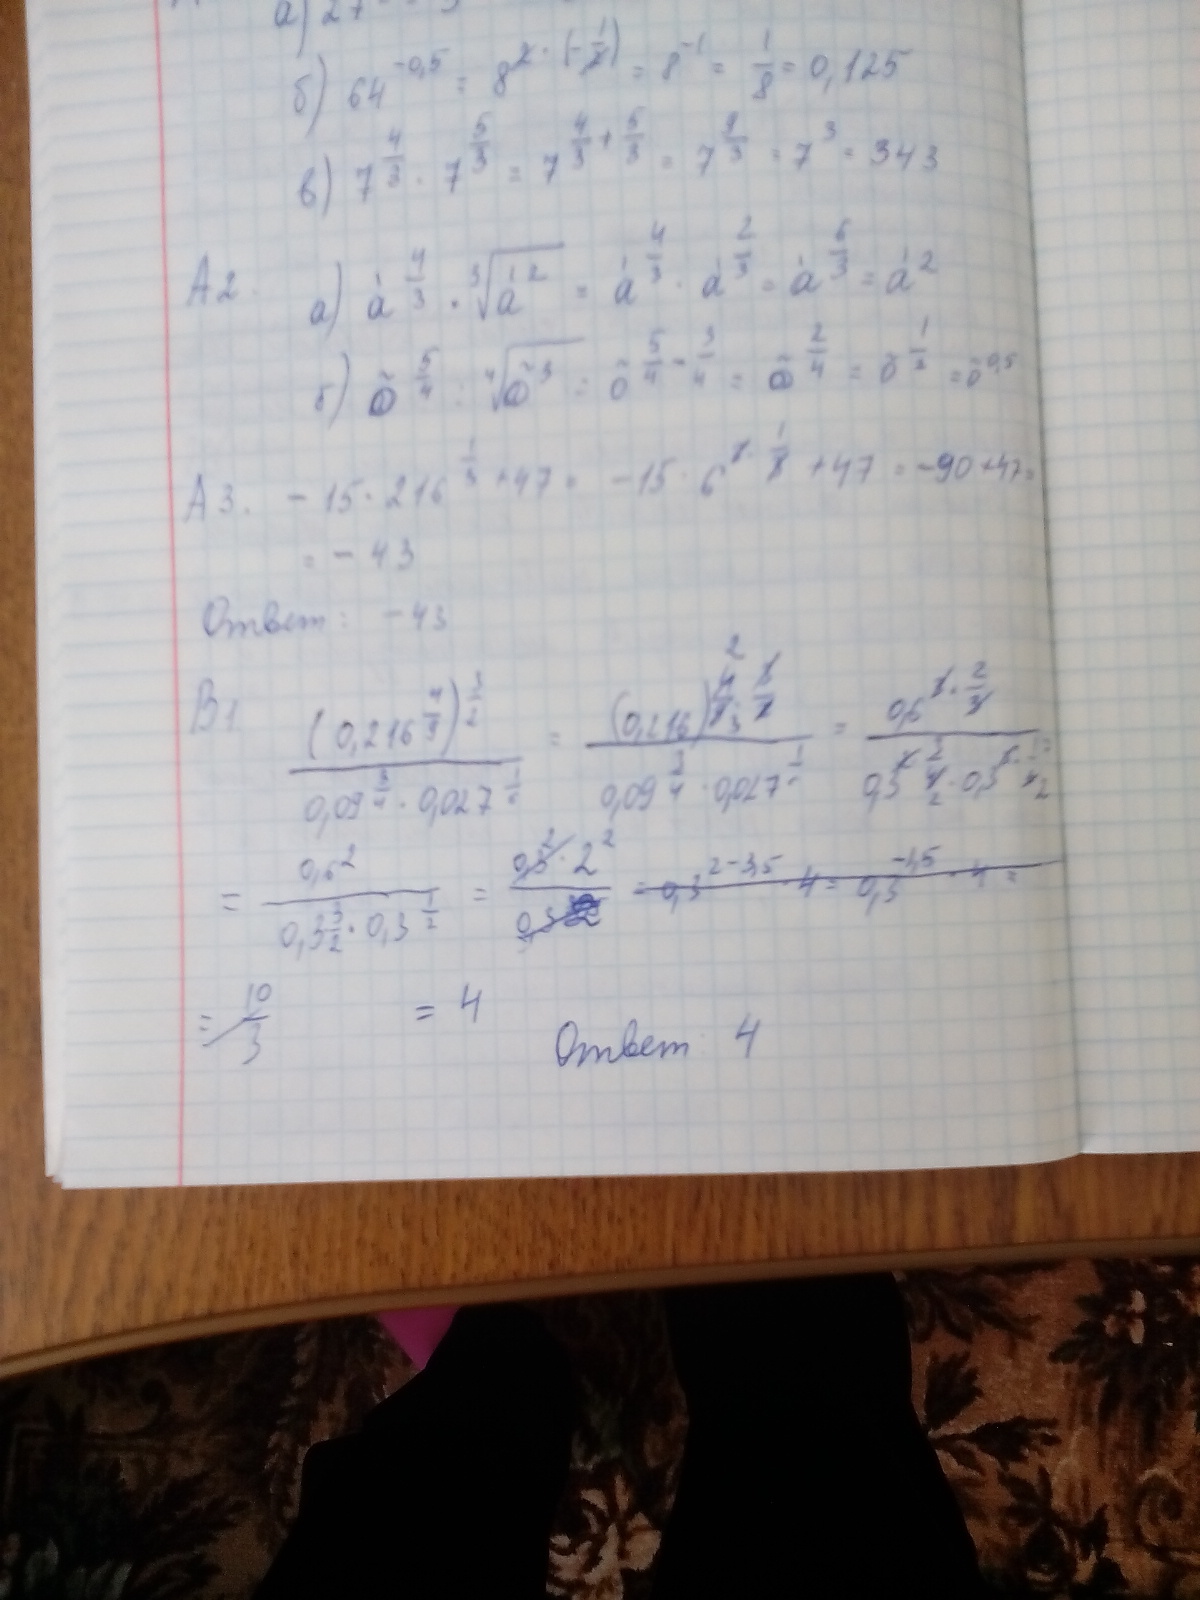 а) 27
б) 64^{-0,5} = 8^{2·(-\frac{1}{2})} = 8^{-1} = \frac{1}{8} = 0,125
в) 7^{\frac{4}{3}} · 7^{\frac{5}{3}} = 7^{\frac{4}{3}+\frac{5}{3}} = 7^{\frac{9}{3}} = 7^3 = 343
А2. а) a^{\frac{4}{3}} · \sqrt[3]{a^2} = a^{\frac{4}{3}} · a^{\frac{2}{3}} = a^{\frac{6}{3}} = a^2
б) b^{\frac{5}{4}} : \sqrt[4]{b^3} = b^{\frac{5}{4}-\frac{3}{4}} = b^{\frac{2}{4}} = b^{\frac{1}{2}} = b^{0,5}
А3. -15 · 216^{\frac{1}{3}} + 47 = -15 · 6^{3·\frac{1}{3}} + 47 = -90 + 47 =
= -43
Ответ: -43
В1 \frac{(0,216^{\frac{4}{9}})^{\frac{3}{2}}}{0,09^{\frac{3}{4}} · 0,027^{\frac{1}{6}}} = \frac{(0,216)^{\frac{4}{9}·\frac{3}{2}}}{0,09^{\frac{3}{4}} · 0,027^{\frac{1}{6}}} = \frac{0,6^{3·\frac{2}{3}}}{0,3^{2·\frac{3}{4}} · 0,3^{3·\frac{1}{6}}} =
= \frac{0,6^2}{0,3^{\frac{3}{2}} · 0,3^{\frac{1}{2}}} = \frac{0,3^2 · 2^2}{0,3^2} = 0,3^{2-3,5} · 4 = 0,3^{-1,5} · 4 =
= \frac{10}{3} = 4 Ответ 4